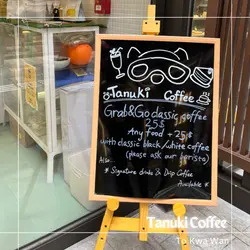 Tanuki Coffee
Tanuki Coffee
Grab&Go classic coffee
25$
Any food + 25$
with classic black/white coffee
(please ask our barista)
Also...
* Signature drinks & Drip Coffee
Available *
Tanuki Coffee
To Kwa Wan